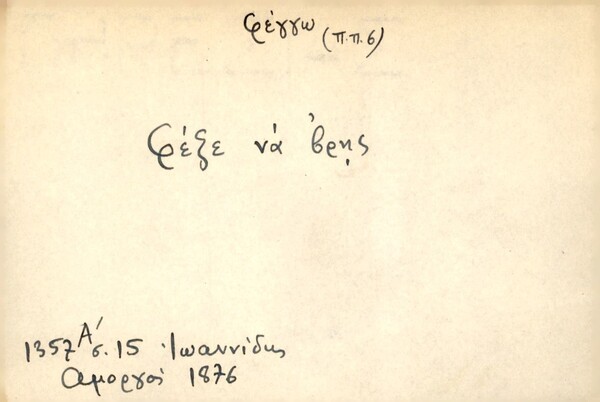 φέγγω (π.π. 6)
Φέξε νά 'βρῃς
1357 Α' σ. 15 Ἰωαννίδης
Αμοργός 1876